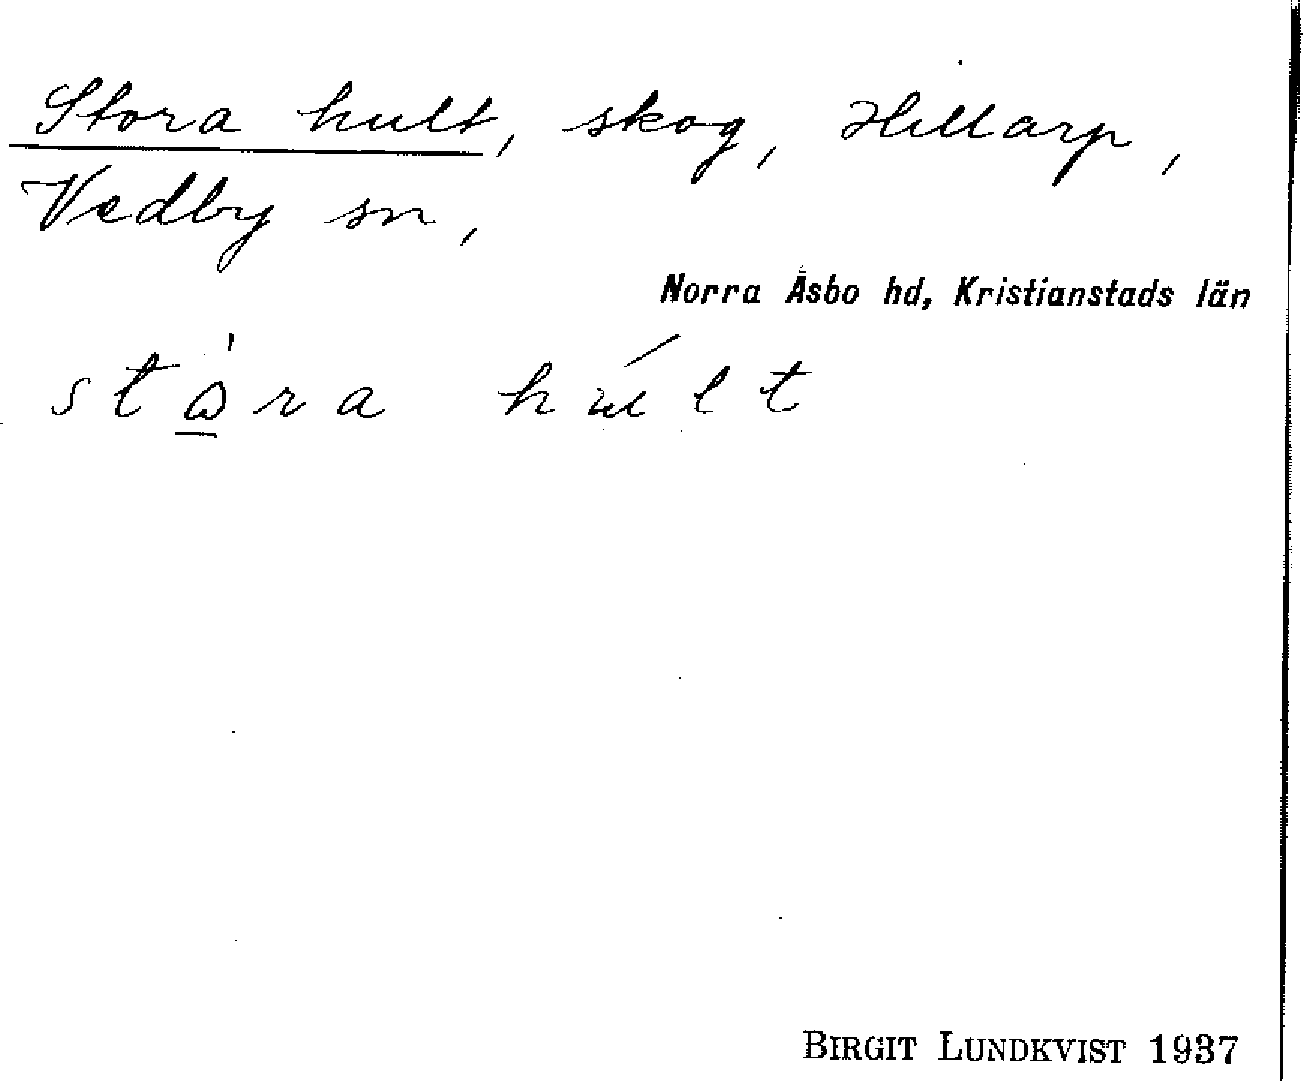 Stora hult, skog, Hillarp,
Vedby sn,
Norra Åsbo hd, Kristianstads län
stɷ̠̀ra húlt
BIRGIT LUNDKVIST 1937